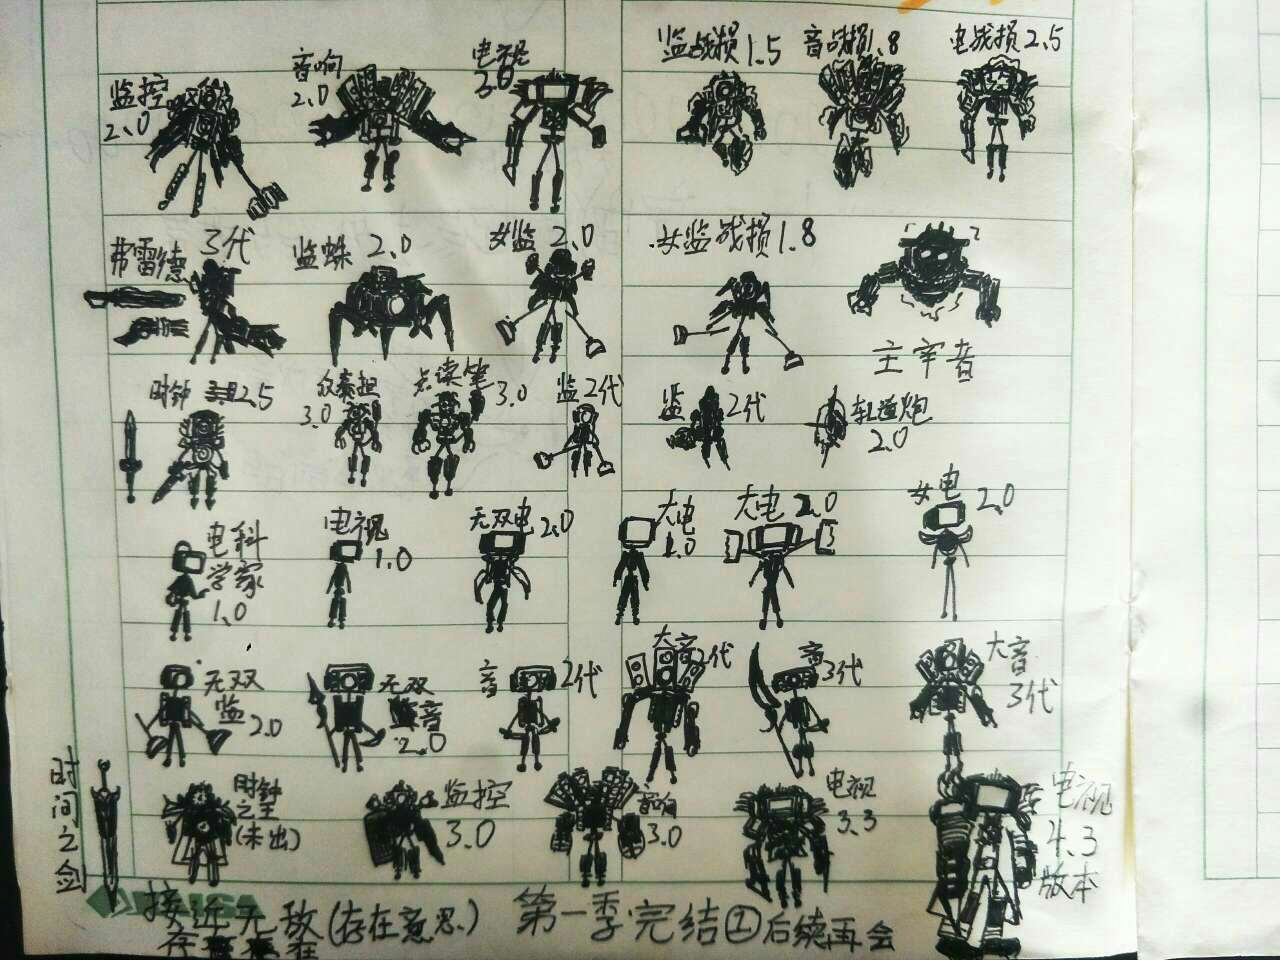 监战损1.5
音战损1.8
电战损2.5
音响
2.0
电视
3.0
监控
2.0
弗雷德
3代
监蛛 2.0
女监 2.0
女监战损1.8
主宰者
时钟
2.5
3.0
点读笔
3.0
监2代
监 2代
轨道炮
2.0
电科
学家
1.0
电视
1.0
无双电2.0
大电
1.0
大电 2.0
女电 2.0
无双
监
2.0
无双
监音
2.0
音 2代
大音2代
音
3代
大音
3代
时间之剑
时钟
之王
(未出)
监控
3.0
音响
3.0
电视
3.3
电视
4.3
版本
接近无敌(存在意思)
第一季完结①后续再会